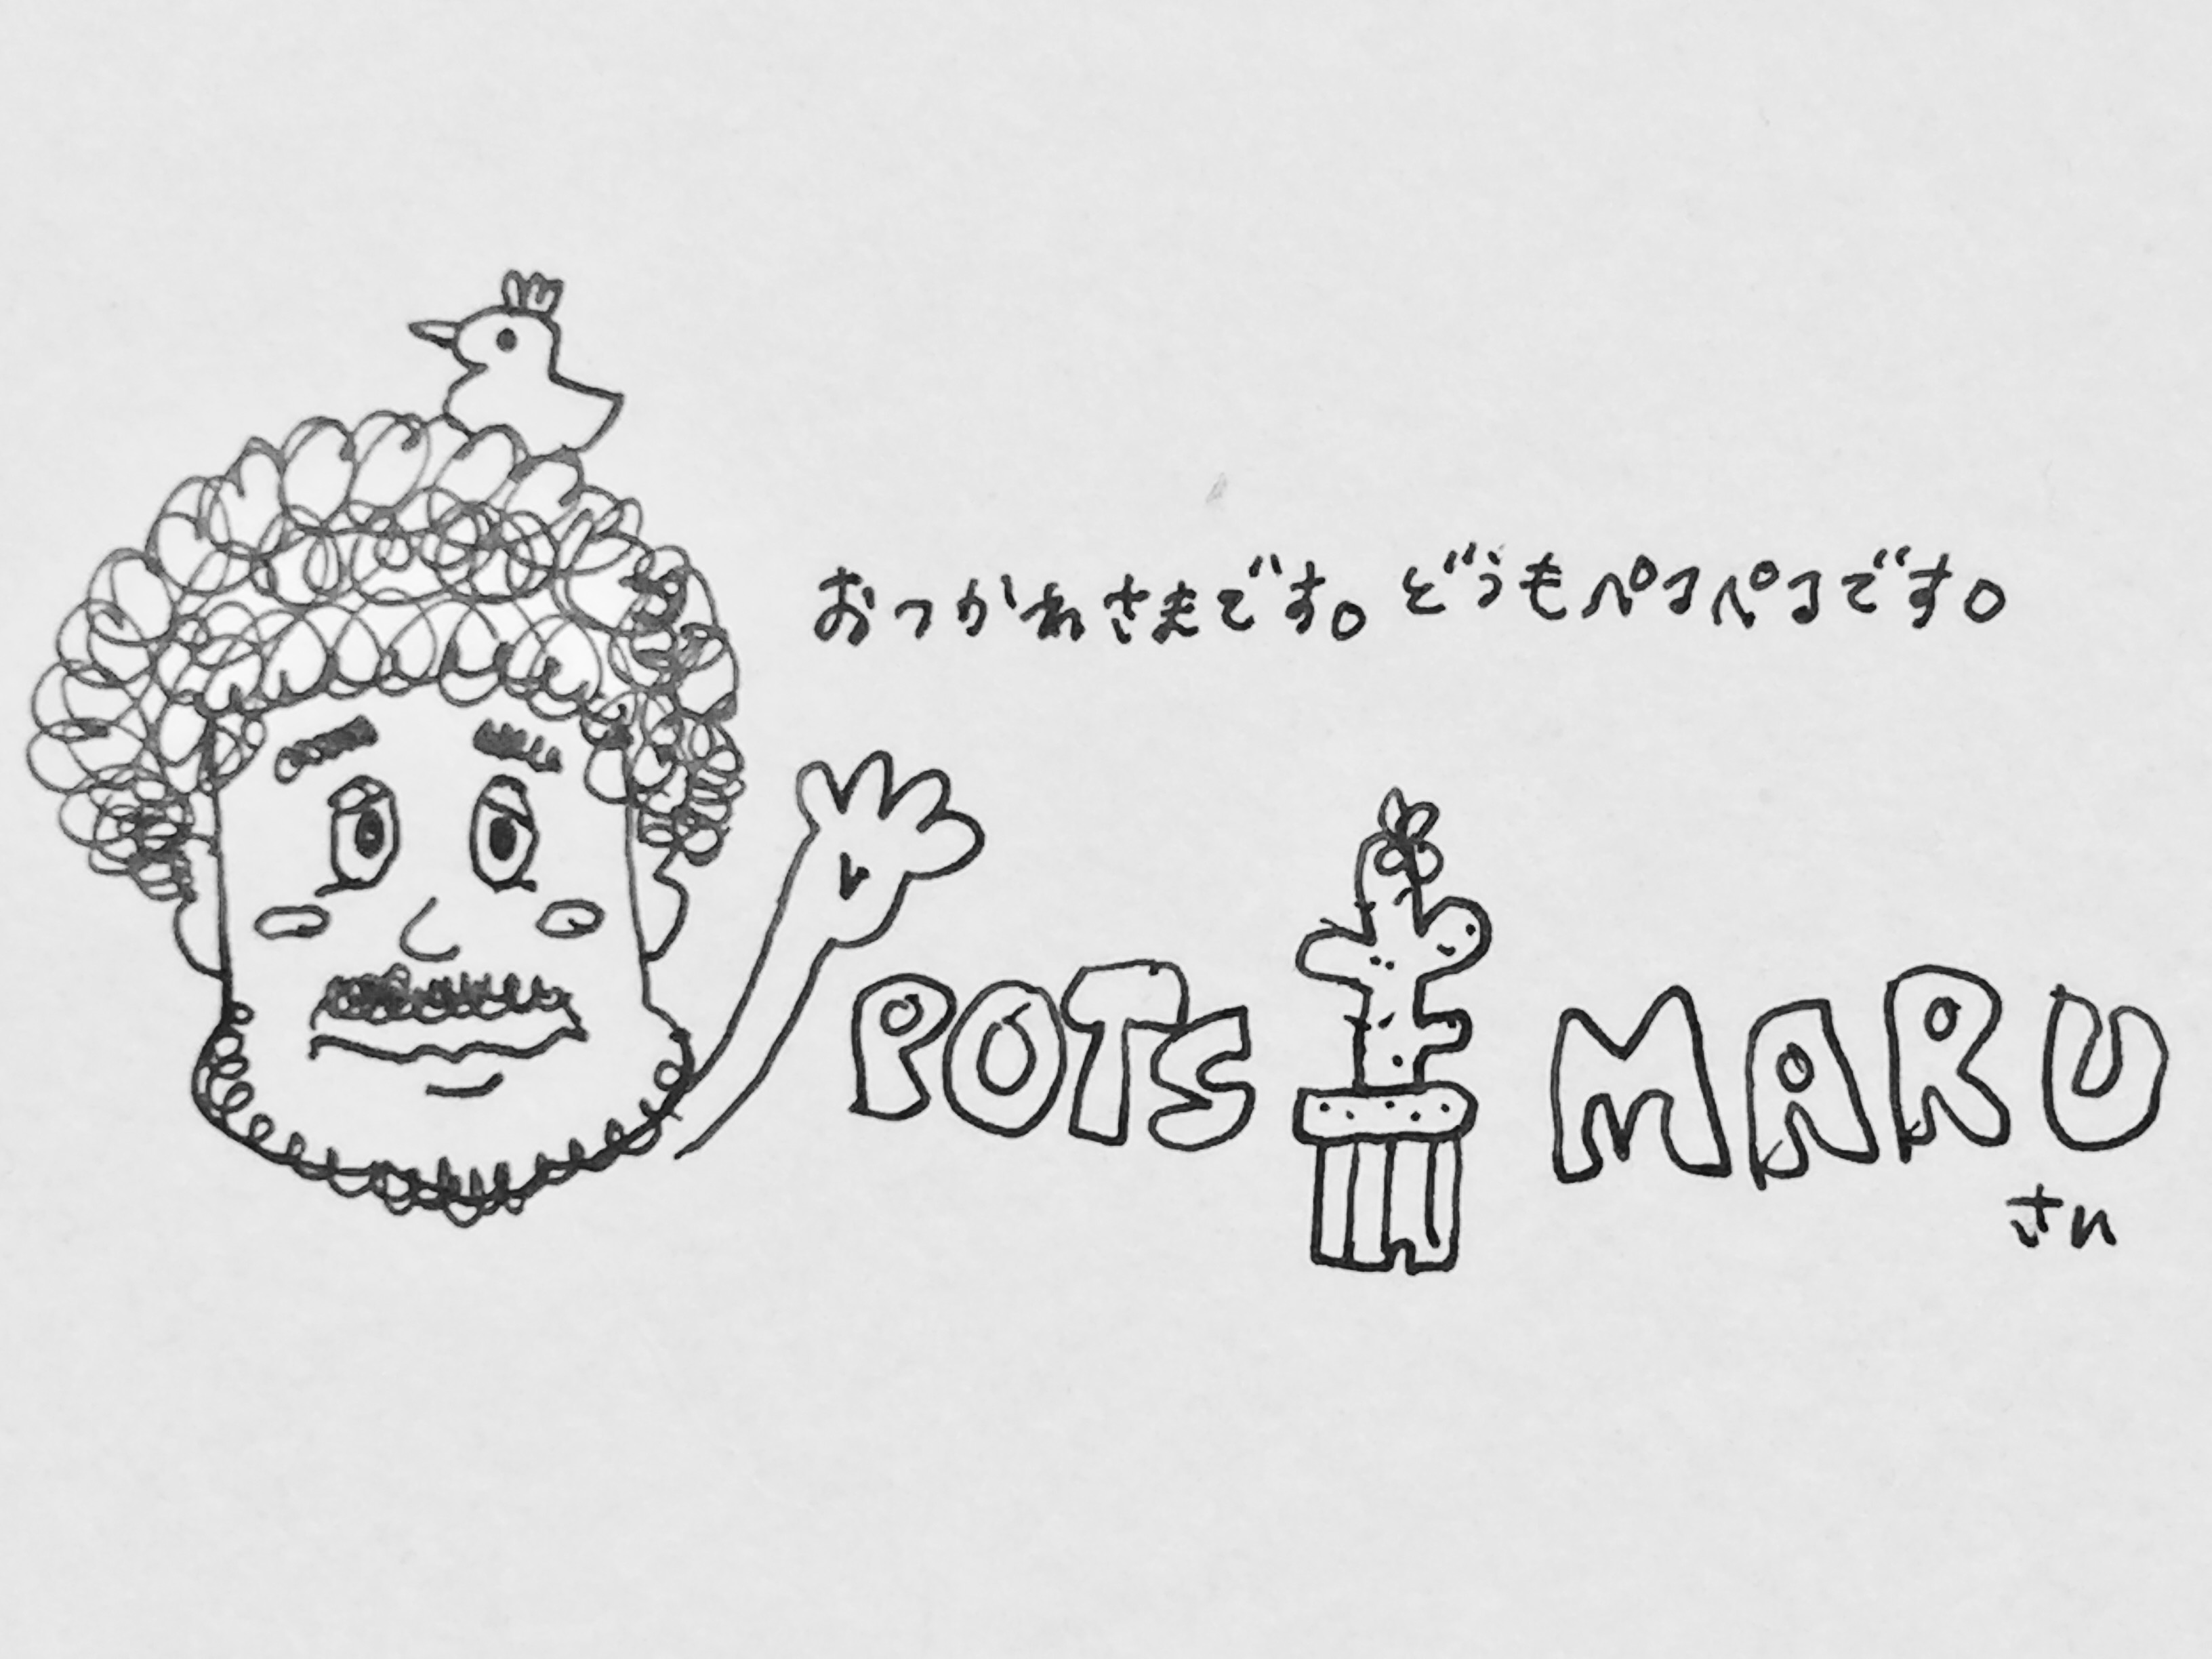 おつかれさまです。どうもペコペコです。
POTS MARU
さん